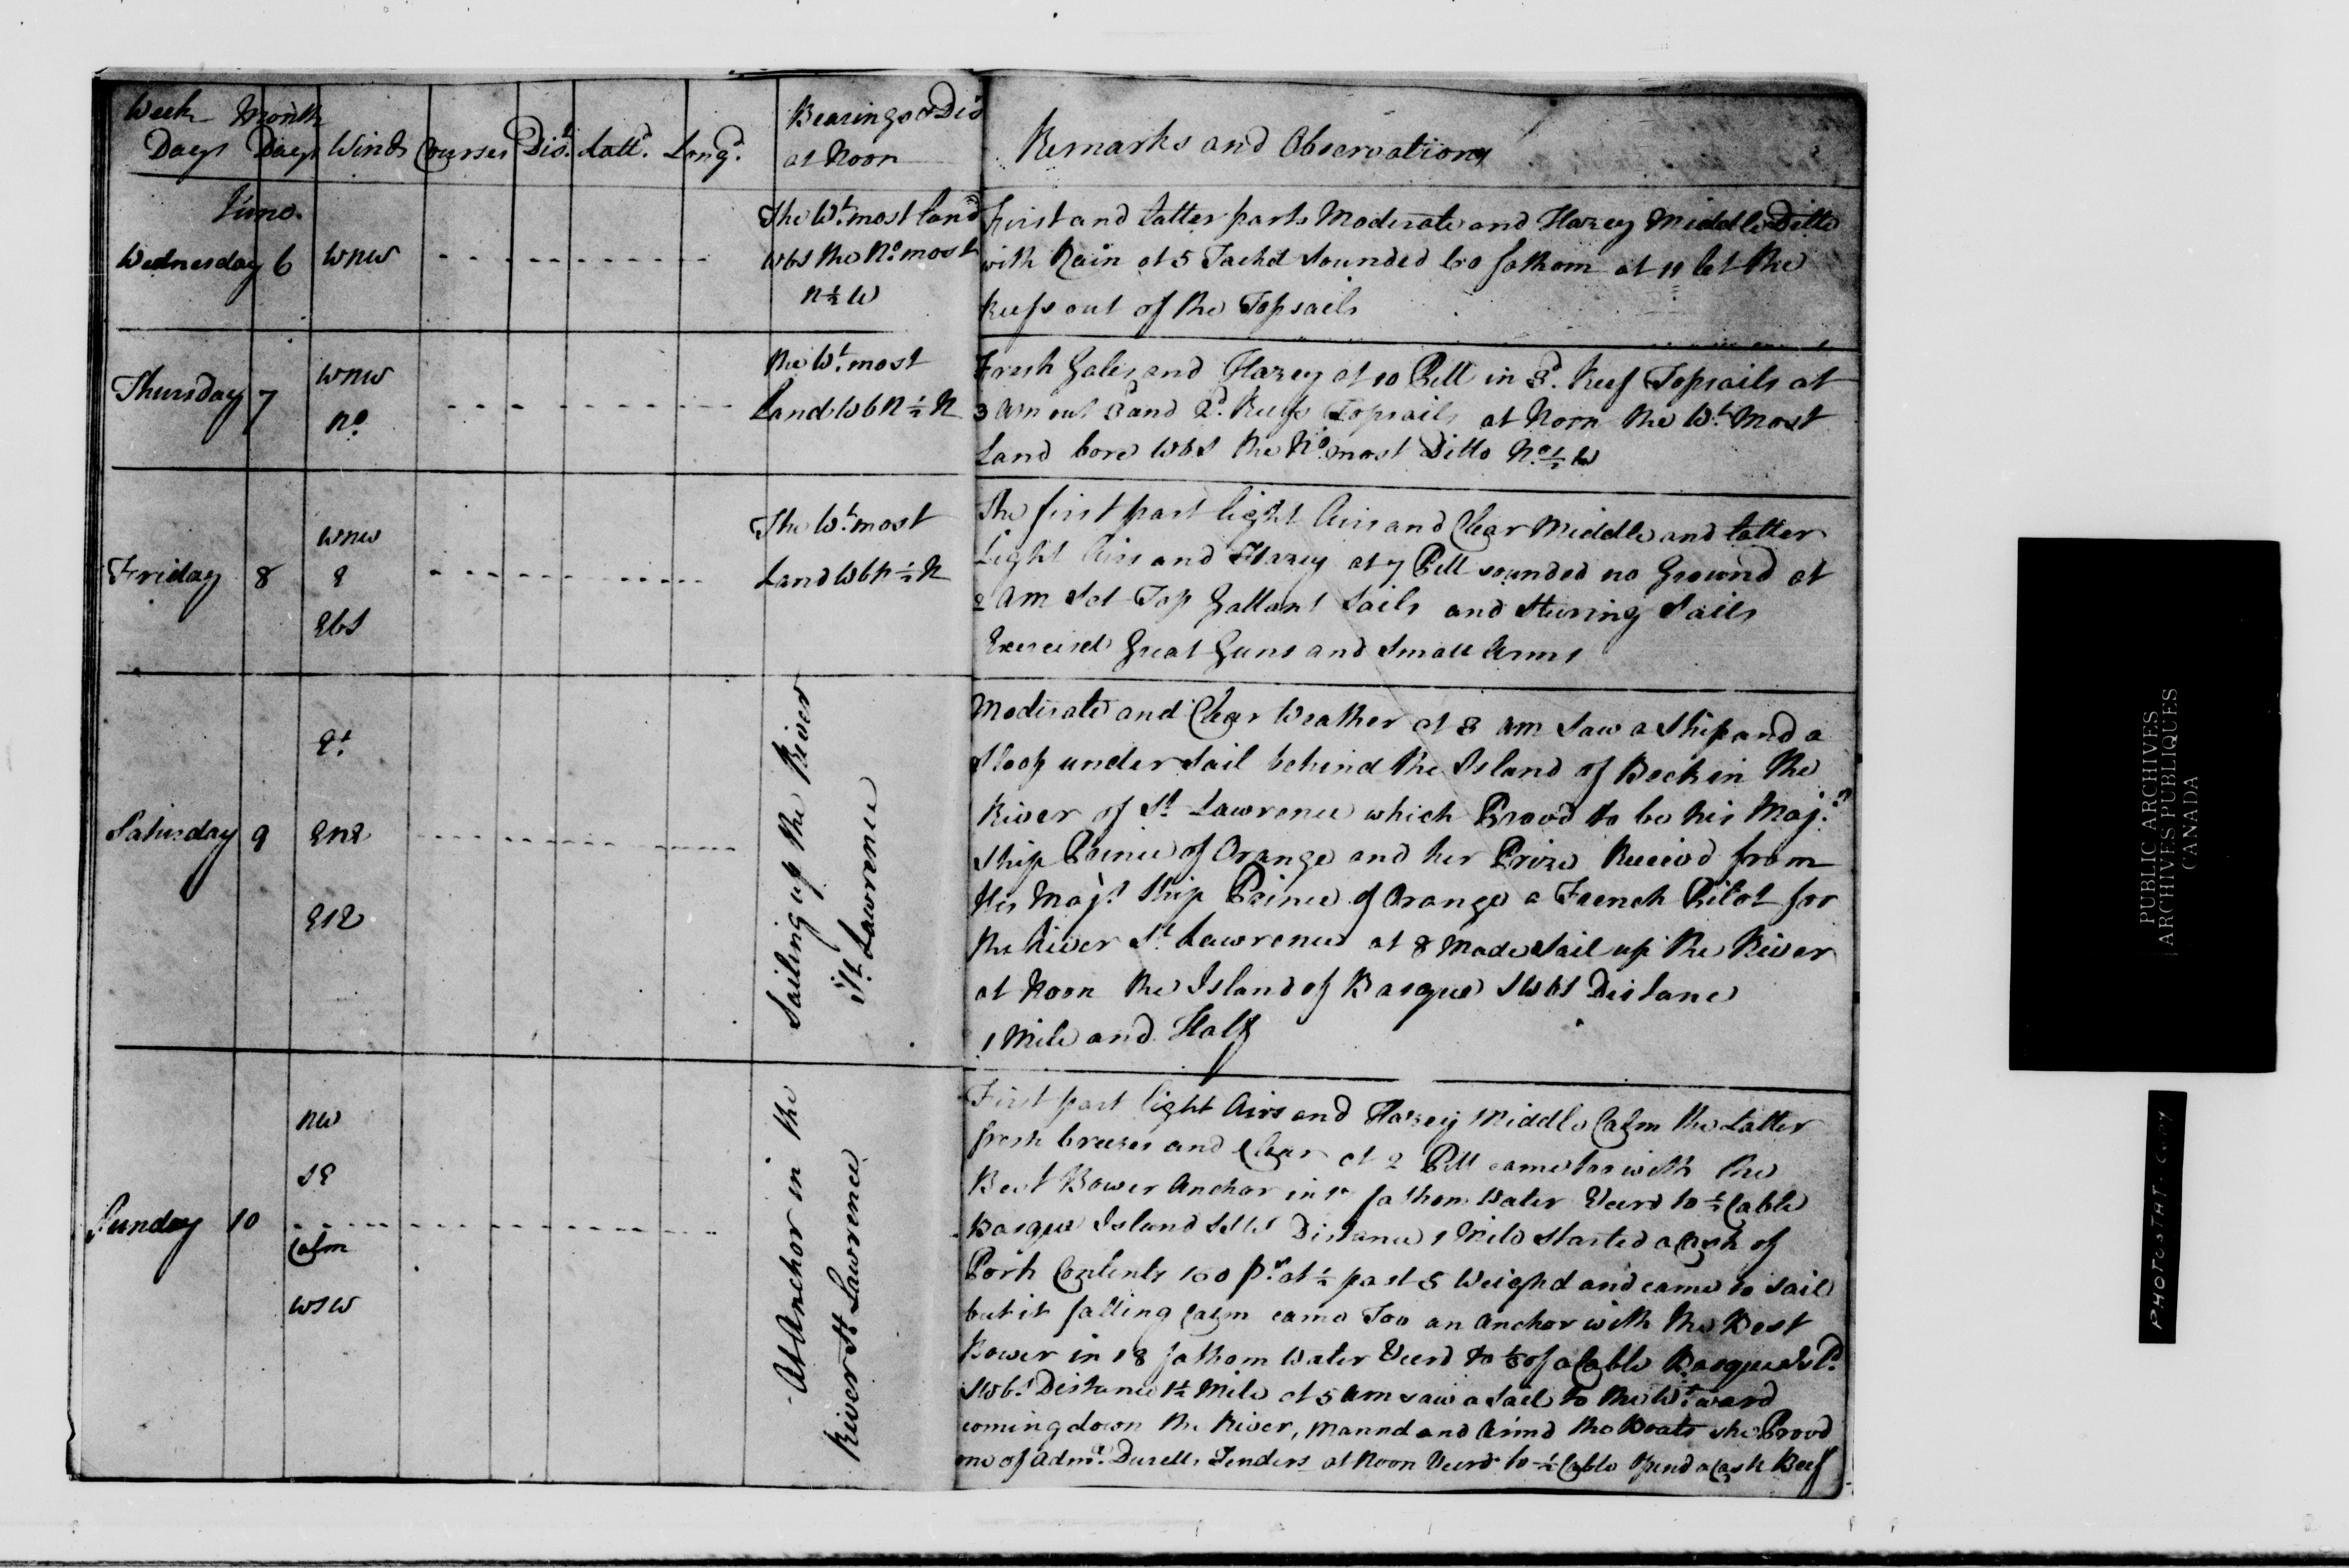 Week Month
Days Days Winds Courses Dist. Latt. Longd. Bearings & Dis at Noon Remarks and Observations
June
Wednesday 6 WNW
The Wt. most land
WbS the No. most
N ½ W
First and latter parts Moderate and Hazey Middle Ditto
with Rain at 5 Tackd Sounded 60 fathom at 11 let the
Reefs out of the Topsails
Thursday 7 WNW
No.
the Wt. most
Land WbN ½ N
Fresh Gales and Hazey at 10 PM in 3d. Reef Topsails at
3 AM out 3d and 2d. Reefs Topsails at Noon the Wt. Most
Land bore WbS the No. most Ditto No. ½ W
Friday 8 WNW
E
EbS
The Wt. most
Land WbN ½ N
The first part light Airs and Clear Middle and latter
Light Airs and Hazey at 7 PM sounded no Ground at
2 AM Set Top Gallant Sails and Steering Sails
Exercised Great Guns and Small Arms
Saturday 9 Et.
ENE
ESE
Sailing up the River
St. Lawrence
Moderate and Clear Weather at 3 AM Saw a Ship and a
Sloop under Sail behind the Island of Beck in the
River of St. Lawrence which Provd to be his Maj.s
Ship Prince of Orange and her Prize Receivd from
His Maj.s Ship Prince of Orange a French Pilot for
the River St. Lawrence at 8 Made Sail up the River
at Noon the Island of Basque SWbS Distance
1 Mile and Half
Sunday 10 NW
SE
Calm
WSW
At Anchor in the
River St. Lawrence
First part light Airs and Hazey Middle Calm the Latter
fresh breezes and Clear at 2 PM came too with the
Best Bower Anchor in fathom Water Veerd to ½ Cable
Basque Island Distance 1 Mile Started a Cask of
Pork Contents 100 ps. at ½ past 5 Weighd and came to Sail
but it falling Calm came Too an Anchor with the Best
Bower in 18 fathom Water Veerd to ⅓ of a Cable Basque Isld.
SWbS Distance 1½ Mile at 5 AM saw a Sail to the Wt. ward
coming down the River, Mannd and Armd the Boats she Provd
one of Adml. Durells Tenders at Noon Veerd to ½ Cable Opend a Cask Beef
PUBLIC ARCHIVES
ARCHIVES PUBLIQUES
CANADA
PHOTOSTAT COPY